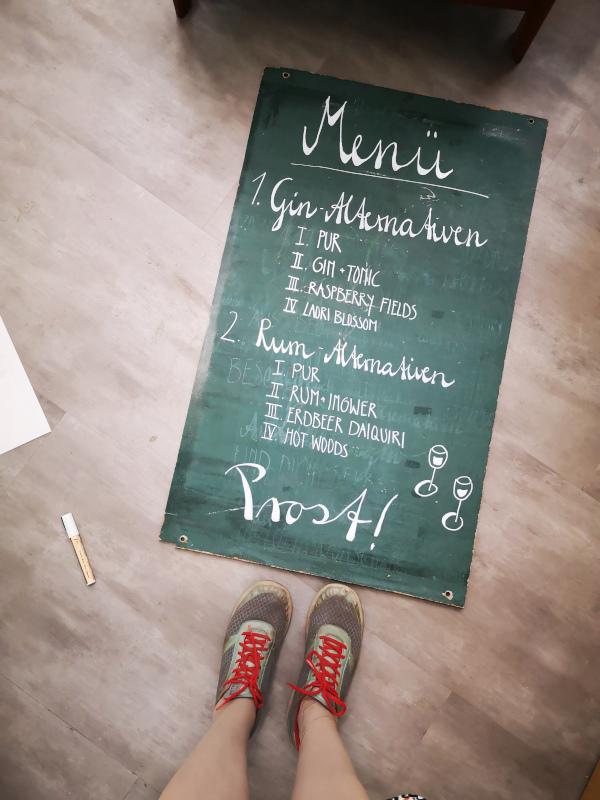 Menü
1. Gin-Alternativen
I. PUR
II. GIN + TONIC
III. RASPBERRY FIELDS
IV LAORI BLOSSOM
2. Rum-Alternativen
I. PUR
II. RUM + INGWER
III. ERDBEER DAIQUIRI
IV HOT WOODS
Prost!